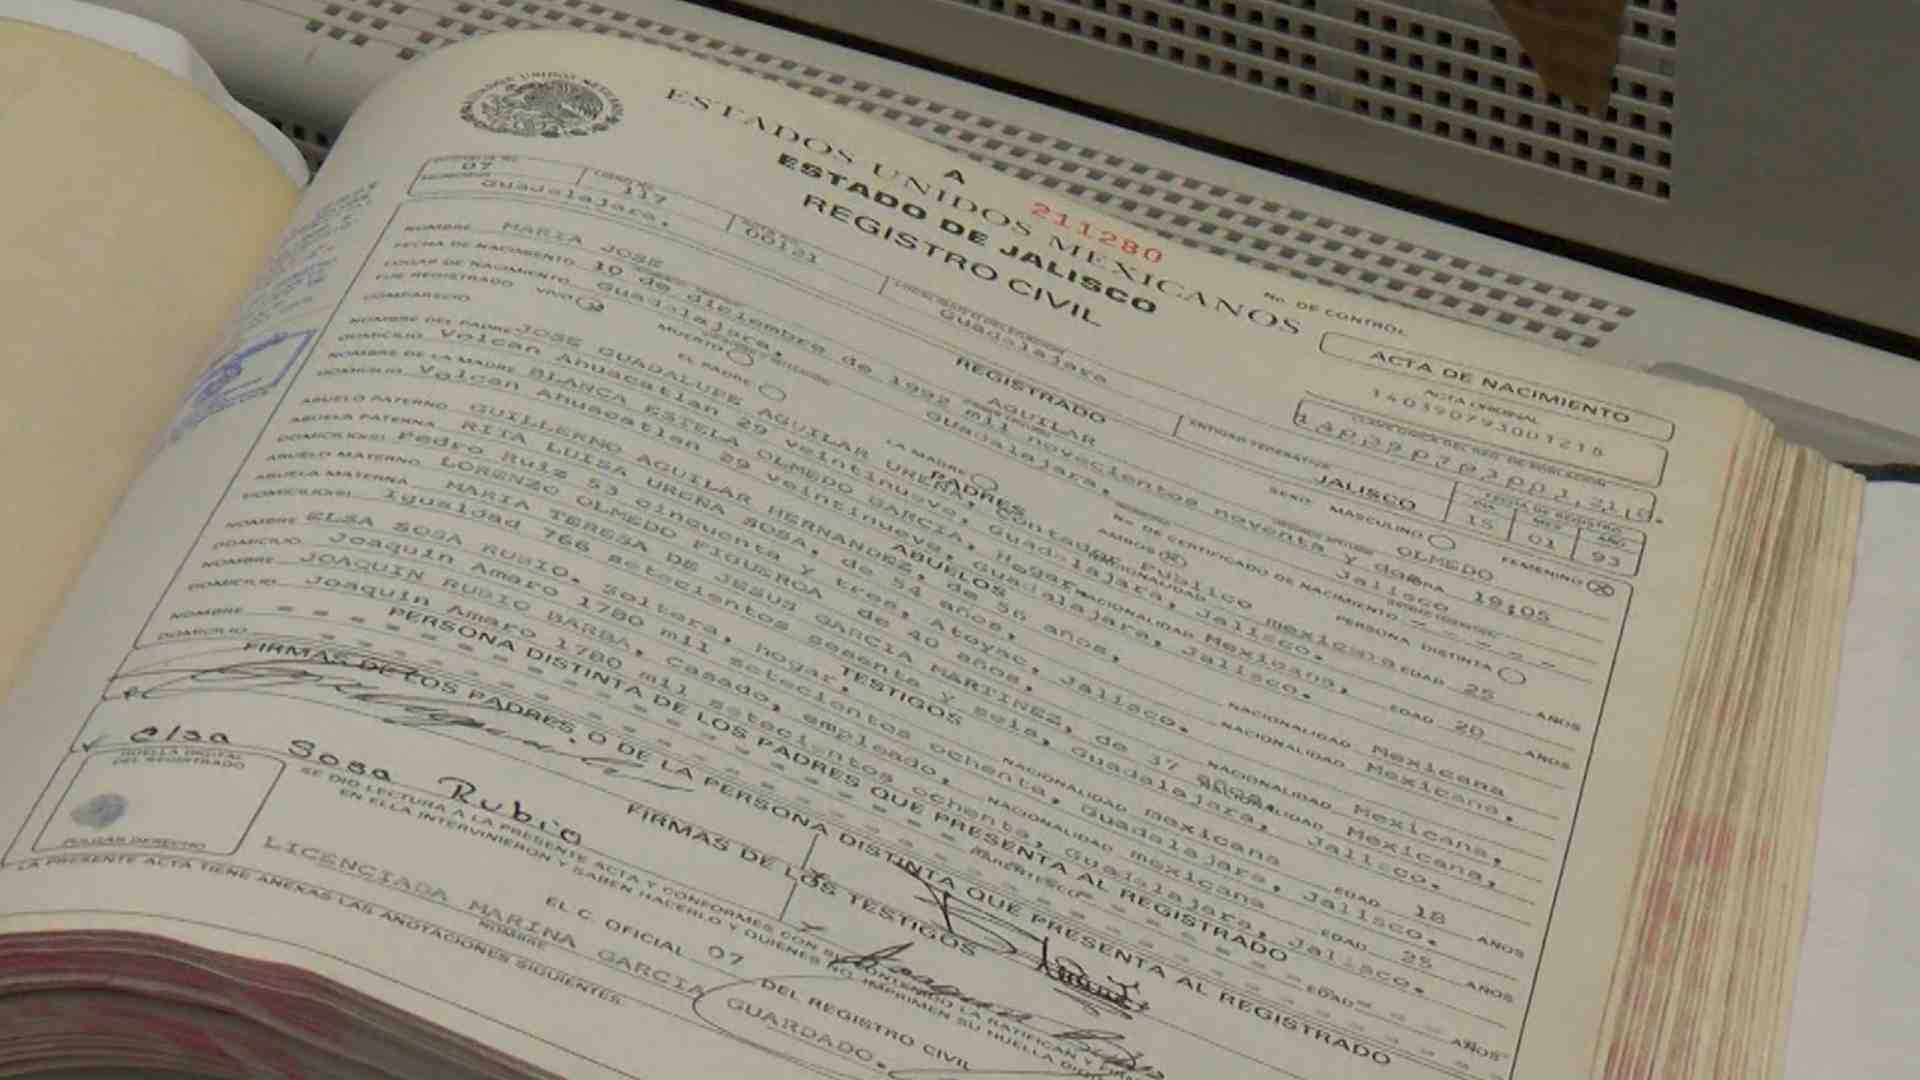 ESTADOS UNIDOS MEXICANOS
A 211280
ESTADO DE JALISCO
REGISTRO CIVIL
No. DE CONTROL
ACTA DE NACIMIENTO
ACTA ORIGINAL
07 117 00121
Guadalajara. Guadalajara JALISCO 15 01 93
REGISTRADO
NOMBRE MARIA JOSE AGUILAR OLMEDO
FECHA DE NACIMIENTO 10 de diciembre de 1992 mil novecientos noventa y dos HORA 19:05
LUGAR DE NACIMIENTO Guadalajara, Guadalajara, Jalisco
FUE REGISTRADO VIVO MUERTO SEXO MASCULINO FEMENINO
COMPARECIO EL PADRE LA MADRE AMBOS PERSONA DISTINTA
No. DE CERTIFICADO DE NACIMIENTO
PADRES
NOMBRE DEL PADRE JOSE GUADALUPE AGUILAR UREÑA, Contador Público NACIONALIDAD mexicana EDAD 25 AÑOS
DOMICILIO Volcan Ahuacatlan 29 veintinueve, Guadalajara, Jalisco.
NOMBRE DE LA MADRE BLANCA ESTELA OLMEDO GARCIA, Hogar NACIONALIDAD Mexicana, EDAD 20 AÑOS
DOMICILIO Volcan Ahuacatlan 29 veintinueve, Guadalajara, Jalisco.
ABUELOS
ABUELO PATERNO GUILLERMO AGUILAR HERNANDEZ, de 56 años, NACIONALIDAD Mexicana
ABUELA PATERNA RITA LUISA UREÑA SOSA, de 54 años, NACIONALIDAD Mexicana.
DOMICILIO(S) Pedro Ruiz 53 cinquenta y tres, Atoyac, Jalisco.
ABUELO MATERNO LORENZO OLMEDO FIGUEROA de 40 años, NACIONALIDAD Mexicana,
ABUELA MATERNA MARIA TERESA DE JESUS GARCIA MARTINEZ, de 37 años. NACIONALIDAD Mexicana,
DOMICILIO(S) Igualdad 766 setecientos sesenta y seis, Guadalajara, Jalisco.
TESTIGOS
NOMBRE ELSA SOSA RUBIO. Soltera, hogar, NACIONALIDAD mexicana EDAD 18 AÑOS
DOMICILIO Joaquín Amaro 1780 mil setecientos ochenta, Guadalajara, Jalisco.
NOMBRE JOAQUIN RUBIO BARBA, casado, empleado, NACIONALIDAD mexicana EDAD 25 AÑOS
DOMICILIO Joaquín Amaro 1780 mil setecientos ochenta, Guadalajara, Jalisco.
PERSONA DISTINTA DE LOS PADRES QUE PRESENTA AL REGISTRADO
NOMBRE PARENTESCO EDAD AÑOS
DOMICILIO
FIRMAS DE LOS PADRES, O DE LA PERSONA DISTINTA QUE PRESENTA AL REGISTRADO
FIRMAS DE LOS TESTIGOS
Elsa Sosa Rubio
HUELLA DIGITAL DEL REGISTRADO
PULGAR DERECHO
SE DIO LECTURA A LA PRESENTE ACTA Y CONFORMES CON SU CONTENIDO LA RATIFICAN Y
EN ELLA INTERVINIERON Y SABEN HACERLO Y QUIENES NO, IMPRIMEN SU HUELLA
EL C. OFICIAL 07 DEL REGISTRO CIVIL
LICENCIADA MARINA GARCIA GUARDADO.
NOMBRE
LA PRESENTE ACTA TIENE ANEXAS LAS ANOTACIONES SIGUIENTES